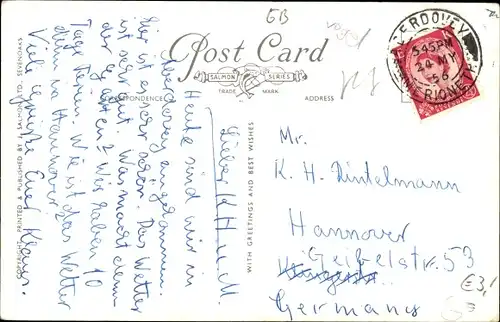 6B
Post Card
SALMON SERIES
TRADE MARK
CORRESPONDENCE
ADDRESS
ABERDOVEY
5 45 PM
20 MY
56
MERIONETH
COPYRIGHT. PRINTED & PUBLISHED BY J. SALMON LTD. SEVENOAKS
WITH GREETINGS AND BEST WISHES
Lieber K H u. M.
Heute sind wir in
Aberdovey angekommen.
Hier ist es sehr schön. Das Wetter
ist sehr gut. Was macht denn
der Garten? Wir haben 10
Tage Ferien. Wie ist das Wetter
denn in Hannover?
Viele Grüße Euer Klaus.
Mr.
K. H. Dintelmann
Hannover
Geibelstr. 53
Germany
G
€3,-